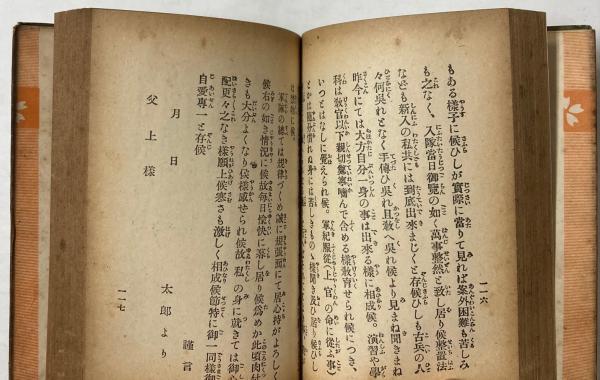 もある様子に候ひしが實際に當りて見れば案外困難も苦しみ
も之なく、入隊當日御覽の如く萬事整然と致し居り候整置法
なども新入の私共には到底出來まじくと存候ひしも古兵の人
々何吳れとなく手傳ひ吳れ且敎へ吳れ候より見まね聞きまね
昨今にては大方自分一身の事は出來る樣に相成候。演習や學
科は敎官以下親切鄭寧嚙んで含める樣敎育せられ候につき、
いつとはなしに覺えられ候。軍紀服從(上官の命に從ふ事)
一一六
軍隊の總ては規律づくめ誠に規張面にて居心持がよろしく
候右の如き情況に候故每日愉快に暮し居り候爲めか此頃肉付
きも大分よくなり候樣感せられ候故私の身に就きては御心
配更々之なき樣願上候寒さも激しく相成候節特に御一同樣御
自愛專一と存候
謹言
月 日
太郎より
父上樣
一一七